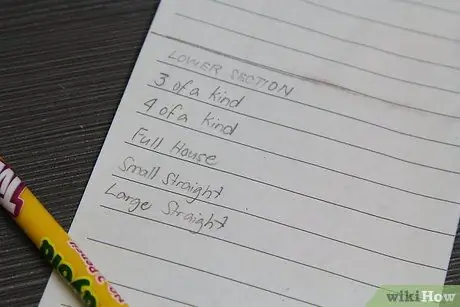 LOWER SECTION
3 of a kind
4 of a kind
Full House
Small Straight
Large Straight
NO. 2 PENCIL
wikiHow